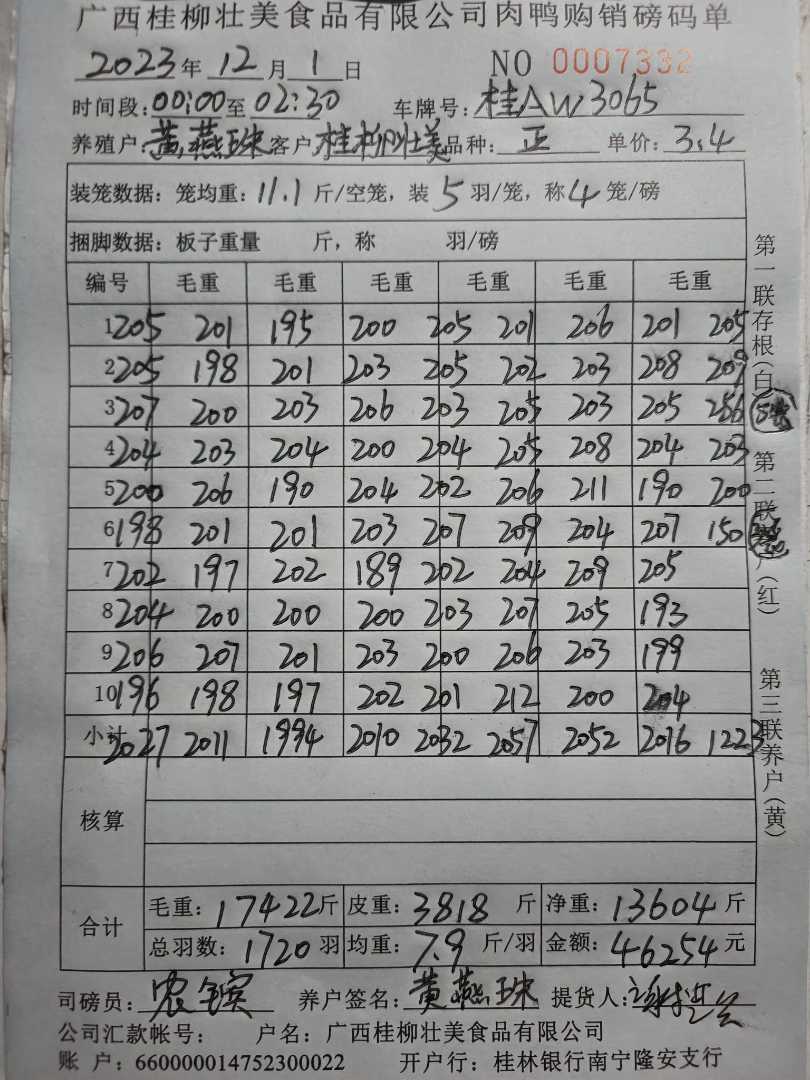 广西桂柳壮美食品有限公司肉鸭购销磅码单
2023年 12月 1日 NO 0007332
时间段:00:00至02:30 车牌号:桂AW3065
养殖户:黄燕珠客户:桂柳壮美品种:正 单价:3.4
装笼数据:笼均重:11.1斤/空笼,装5羽/笼,称4笼/磅
捆脚数据:板子重量 斤,称 羽/磅
编号 毛重 毛重 毛重 毛重 毛重 毛重
1 205 201 195 200 205 201 206 201 205
2 205 198 201 203 205 202 203 208 209
3 207 200 203 206 203 205 203 205 256
4 204 203 204 200 204 205 208 204 203
5 200 206 190 204 202 206 211 190 200
6 198 201 201 203 207 209 204 207 150
7 202 197 202 189 202 204 209 205
8 204 200 200 200 203 207 205 193
9 206 207 201 203 200 206 203 199
10 196 198 197 202 201 212 200 204
小计 2027 2011 1994 2010 2032 2057 2052 2016 1223
核算
合计 毛重:17422斤 皮重:3818斤 净重:13604斤
总羽数:1720羽 均重:7.9斤/羽 金额:46254元
司磅员: 养户签名:黄燕珠 提货人:
公司汇款帐号: 户名:广西桂柳壮美食品有限公司
账 户:660000014752300022 开户行:桂林银行南宁隆安支行
第一联存根(白) 第二联 户(红) 第三联养户(黄)